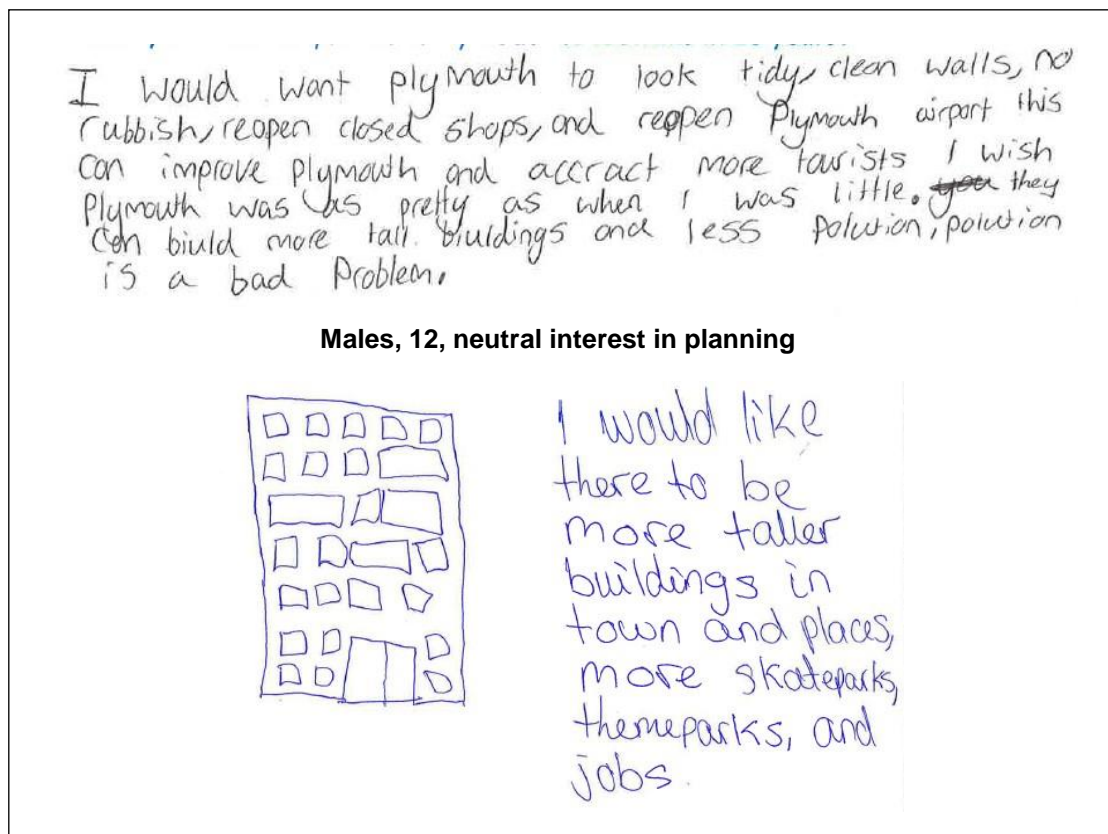 I would want plymouth to look tidy, clean walls, no
rubbish, reopen closed shops, and reopen Plymouth airport this
can improve plymouth and accract more tourists I wish
Plymouth was as pretty as when I was little. you they
can biuld more tall biuldings and less polution, polution
is a bad problem.
Males, 12, neutral interest in planning
I would like
there to be
more taller
buildings in
town and places,
more skateparks,
themeparks, and
jobs.